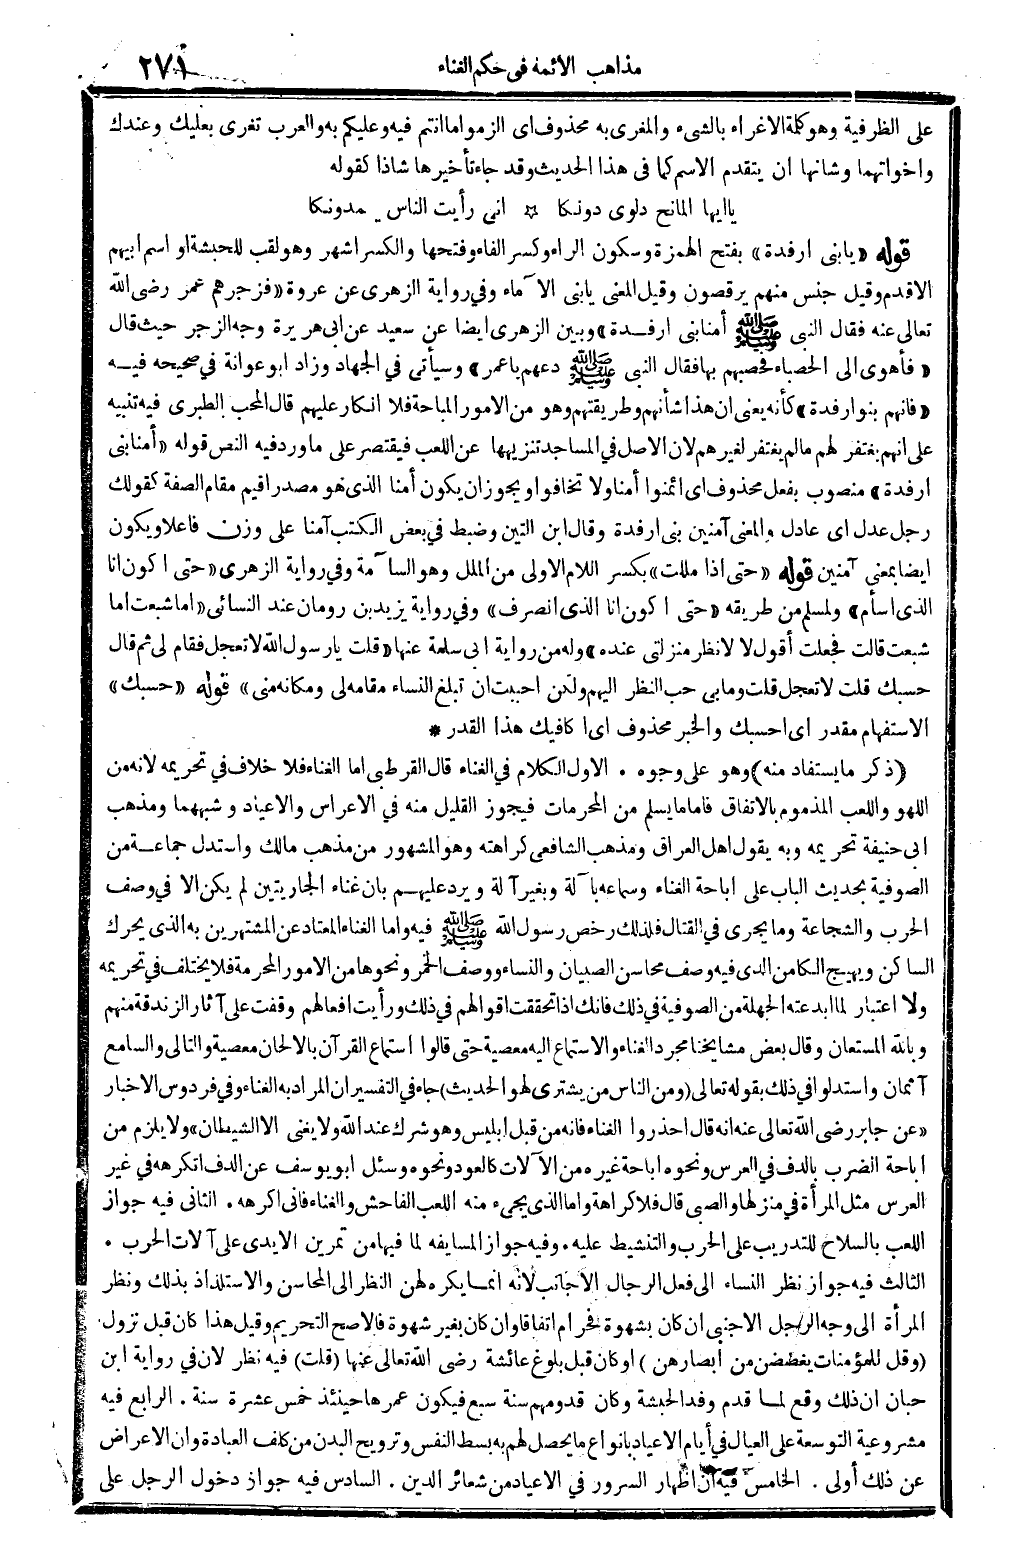 مذاهب الأئمة في حكم الغناء ٢٧١
على الظرفية وهو كلمة الاغراء بالشيء والمغرى به محذوف اى الزموا ما انتم فيه وعليكم به والعرب تغرى بعليك وعندك
واخواتهما وشانها ان يتقدم الاسم كما فى هذا الحديث وقد جاء تأخيرها شاذا كقوله
ياايها المانح دلوى دونكا ☆ انى رأيت الناس يحمدونكا
قوله «يابنى ارفدة» بفتح الهمزة وسكون الراء وكسر الفاء وفتحها والكسر اشهر وهو لقب للحبشة او اسم ابيهم
الاقدم وقيل جنس منهم يرقصون وقيل المعنى يابنى الاماء وفي رواية الزهرى عن عروة «فزجرهم عمر رضى الله
تعالى عنه فقال النبى ﷺ أمنابنى ارفدة» وبين الزهرى ايضا عن سعيد عن ابى هريرة وجه الزجر حيث قال
«فأهوى الى الحصباء فحصبهم بها فقال النبى ﷺ دعهم ياعمر» وسيأتى في الجهاد وزاد ابو عوانة في صحيحه فيه
«فانهم بنو ارفدة» كأنه يعنى ان هذا شأنهم وطريقتهم وهو من الامور المباحة فلا انكار عليهم قال المحب الطبرى فيه تنبيه
على انهم يغتفر لهم مالم يغتفر لغيرهم لان الاصل في المساجد تنزيهها عن اللعب فيقتصر على ماورد فيه النص قوله «أمنابنى
ارفدة» منصوب بفعل محذوف اى ائمنوا أمنا ولا تخافوا ويجوز ان يكون أمنا الذى هو مصدر اقيم مقام الصفة كقولك
رجل عدل اى عادل والمعنى آمنين بنى ارفدة وقال ابن التين وضبط في بعض الكتب آمنا على وزن فاعلا ويكون
ايضا بمعنى آمنين قوله «حتى اذا مللت» بكسر اللام الاولى من الملل وهو السآمة وفي رواية الزهرى «حتى اكون انا
الذى اسأم» ولمسلم من طريقه «حتى اكون انا الذى انصرف» وفي رواية يزيد بن رومان عند النسائى «اما شبعت اما
شبعت قالت فجعلت أقول لا لانظر منزلتى عنده» وله من رواية ابى سلمة عنها «قلت يارسول الله لاتعجل فقام لى ثم قال
حسبك قلت لاتعجل قلت ومابى حب النظر اليهم ولكن احببت ان تبلغ النساء مقامه لى ومكانه منى» قوله «حسبك»
الاستفهام مقدر اى احسبك والخبر محذوف اى اكافيك هذا القدر *
(ذكر مايستفاد منه) وهو على وجوه . الاول الكلام في الغناء قال القرطبى اما الغناء فلا خلاف في تحريمه لانه من
اللهو واللعب المذموم بالاتفاق فاما مايسلم من المحرمات فيجوز القليل منه في الاعراس والاعياد وشبههما ومذهب
ابى حنيفة تحريمه وبه يقول اهل العراق ومذهب الشافعى كراهته وهو المشهور من مذهب مالك واستدل جماعة من
الصوفية بحديث الباب على اباحة الغناء وسماعه بآلة وبغير آلة ويرد عليهم بان غناء الجاريتين لم يكن الا في وصف
الحرب والشجاعة ومايجرى في القتال فلذلك رخص رسول الله ﷺ فيه واما الغناء المعتاد عن المشتهرين به الذى يحرك
الساكن ويهيج الكامن الذى فيه وصف محاسن الصبيان والنساء ووصف الخمر ونحوها من الامور المحرمة فلا يختلف في تحريمه
ولا اعتبار لما ابدعته الجهلة من الصوفية في ذلك فانك اذا تحققت اقوالهم في ذلك ورأيت افعالهم وقفت على آثار الزندقة منهم
وبالله المستعان وقال بعض مشايخنا مجرد الغناء والاستماع اليه معصية حتى قالوا استماع القرآن بالالحان معصية والتالى والسامع
آثمان واستدلوا في ذلك بقوله تعالى (ومن الناس من يشترى لهو الحديث) جاء في التفسير ان المراد به الغناء وفي فردوس الاخبار
«عن جابر رضى الله تعالى عنه انه قال احذروا الغناء فانه من قبل ابليس وهو شرك عند الله ولا يغنى الا الشيطان» ولا يلزم من
اباحة الضرب بالدف في العرس ونحوه اباحة غيره من الآلات كالعود ونحوه وسئل ابو يوسف عن الدف اتكرهه في غير
العرس مثل المرأة في منزلها والصبى قال فلا كراهة واما الذى يجىء منه اللعب الفاحش والغناء فانى اكرهه . الثانى فيه جواز
اللعب بالسلاح للتدريب على الحرب والتنشيط عليه . وفيه جواز المسايفه لما فيها من تمرين الايدى على آلات الحرب .
الثالث فيه جواز نظر النساء الى فعل الرجال الاجانب لانه انما يكره لهن النظر الى المحاسن والاستلذاذ بذلك ونظر
المرأة الى وجه الرجل الاجنبى ان كان بشهوة فحرام اتفاقا وان كان بغير شهوة فالاصح التحريم وقيل هذا كان قبل نزول
(وقل للمؤمنات يغضضن من ابصارهن) او كان قبل بلوغ عائشة رضى الله تعالى عنها (قلت) فيه نظر لان في رواية ابن
حبان ان ذلك وقع لما قدم وفد الحبشة وكان قدومهم سنة سبع فيكون عمرها حينئذ خمس عشرة سنة . الرابع فيه
مشروعية التوسعة على العيال في أيام الاعياد بانواع مايحصل لهم به بسط النفس وترويح البدن من كلف العبادة وان الاعراض
عن ذلك أولى . الخامس فيه ان اظهار السرور في الاعياد من شعائر الدين . السادس فيه جواز دخول الرجل على